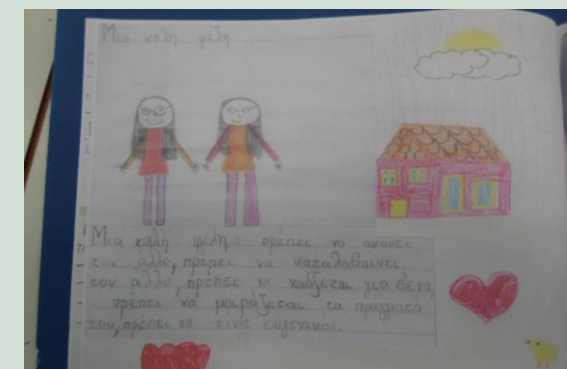 Μια καλή φίλη
Μια καλή φίλη πρέπει να ακούει
τον άλλο, πρέπει να καταλαβαίνει
τον άλλο, πρέπει να νοιάζεται για σένα,
πρέπει να μοιράζεται τα πράγματά
του, πρέπει να είναι ευγενικός.